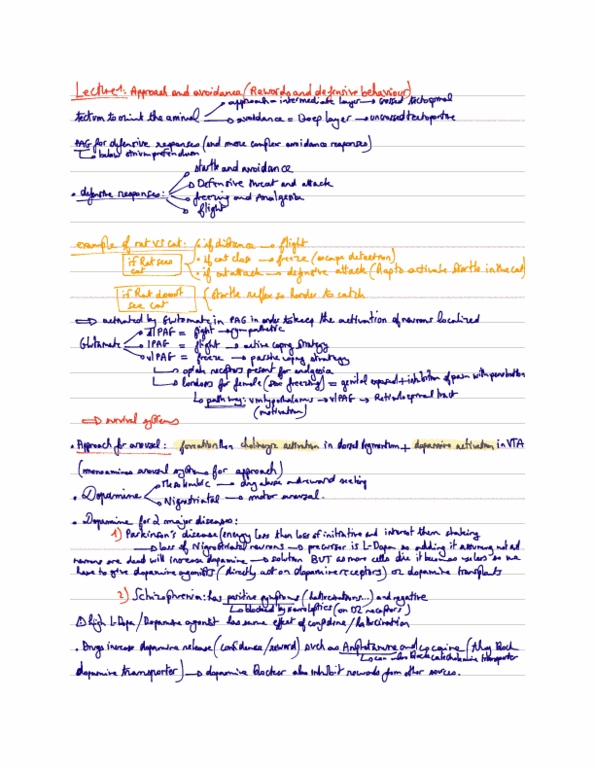 Lecture 1: Approach and avoidance (Rewards and defensive behaviour)
approach = intermediate layer → crossed tectospinal
tectum to orient the animal
avoidance = Deep layer → uncrossed tectopontine
PAG for defensive responses (and more complex avoidance responses)
↳ below
startle and avoidance
• defensive responses:
Defensive threat and attack
freezing and Analgesia
flight
example of rat vs cat:
• if distance → flight
if Rat sees cat
• if cat close → freeze (escape detection)
• if cat attack → defensive attack (to activate startle in the cat)
if Rat doesn't see cat
(startle reflex so harder to catch
⇒ activated by Glutamate in PAG in order to keep the activation of neurons localized
Glutamate
dlPAG = fight → sympathetic
lPAG = flight → active coping strategy
vlPAG = freeze → passive coping strategy
↳ opioid receptors present for analgesia
↳ lordosis for female (sex freezing) = genital exposed + inhibition of pain with penetration
↳ pathway: vmhypothalamus → vlPAG → Reticulospinal tract
(motivation)
⇒ survival systems
• Approach for arousal: cholinergic activation in dorsal tegmentum + dopamine activation in VTA
(monoamines arousal systems for approach)
• Dopamine
Mesolimbic → drug abuse and reward seeking
Nigrostriatal → motor arousal.
• Dopamine for 2 major diseases:
1) Parkinson's disease (energy loss then loss of initiative and interest then shaking
→ loss of Nigrostriatal neurons → precursor is L-Dopa so adding it assuming not all
neurons are dead will increase dopamine → solution BUT as more cells die it becomes useless so we
have to give dopamine agonists (directly act on dopamine receptors) or dopamine transplants
2) Schizophrenia: has positive symptoms (hallucinations...) and negative
↳ blocked by neuroleptics (on D2 receptors)
Δ high L-Dopa / Dopamine agonist has same effect of confidence / hallucination
• Drugs increase dopamine release (confidence / reward) such as Amphetamine and cocaine (they block
↳ can also block catecholamine transporter
dopamine transporter) → dopamine blocker also inhibit rewards from other sources.